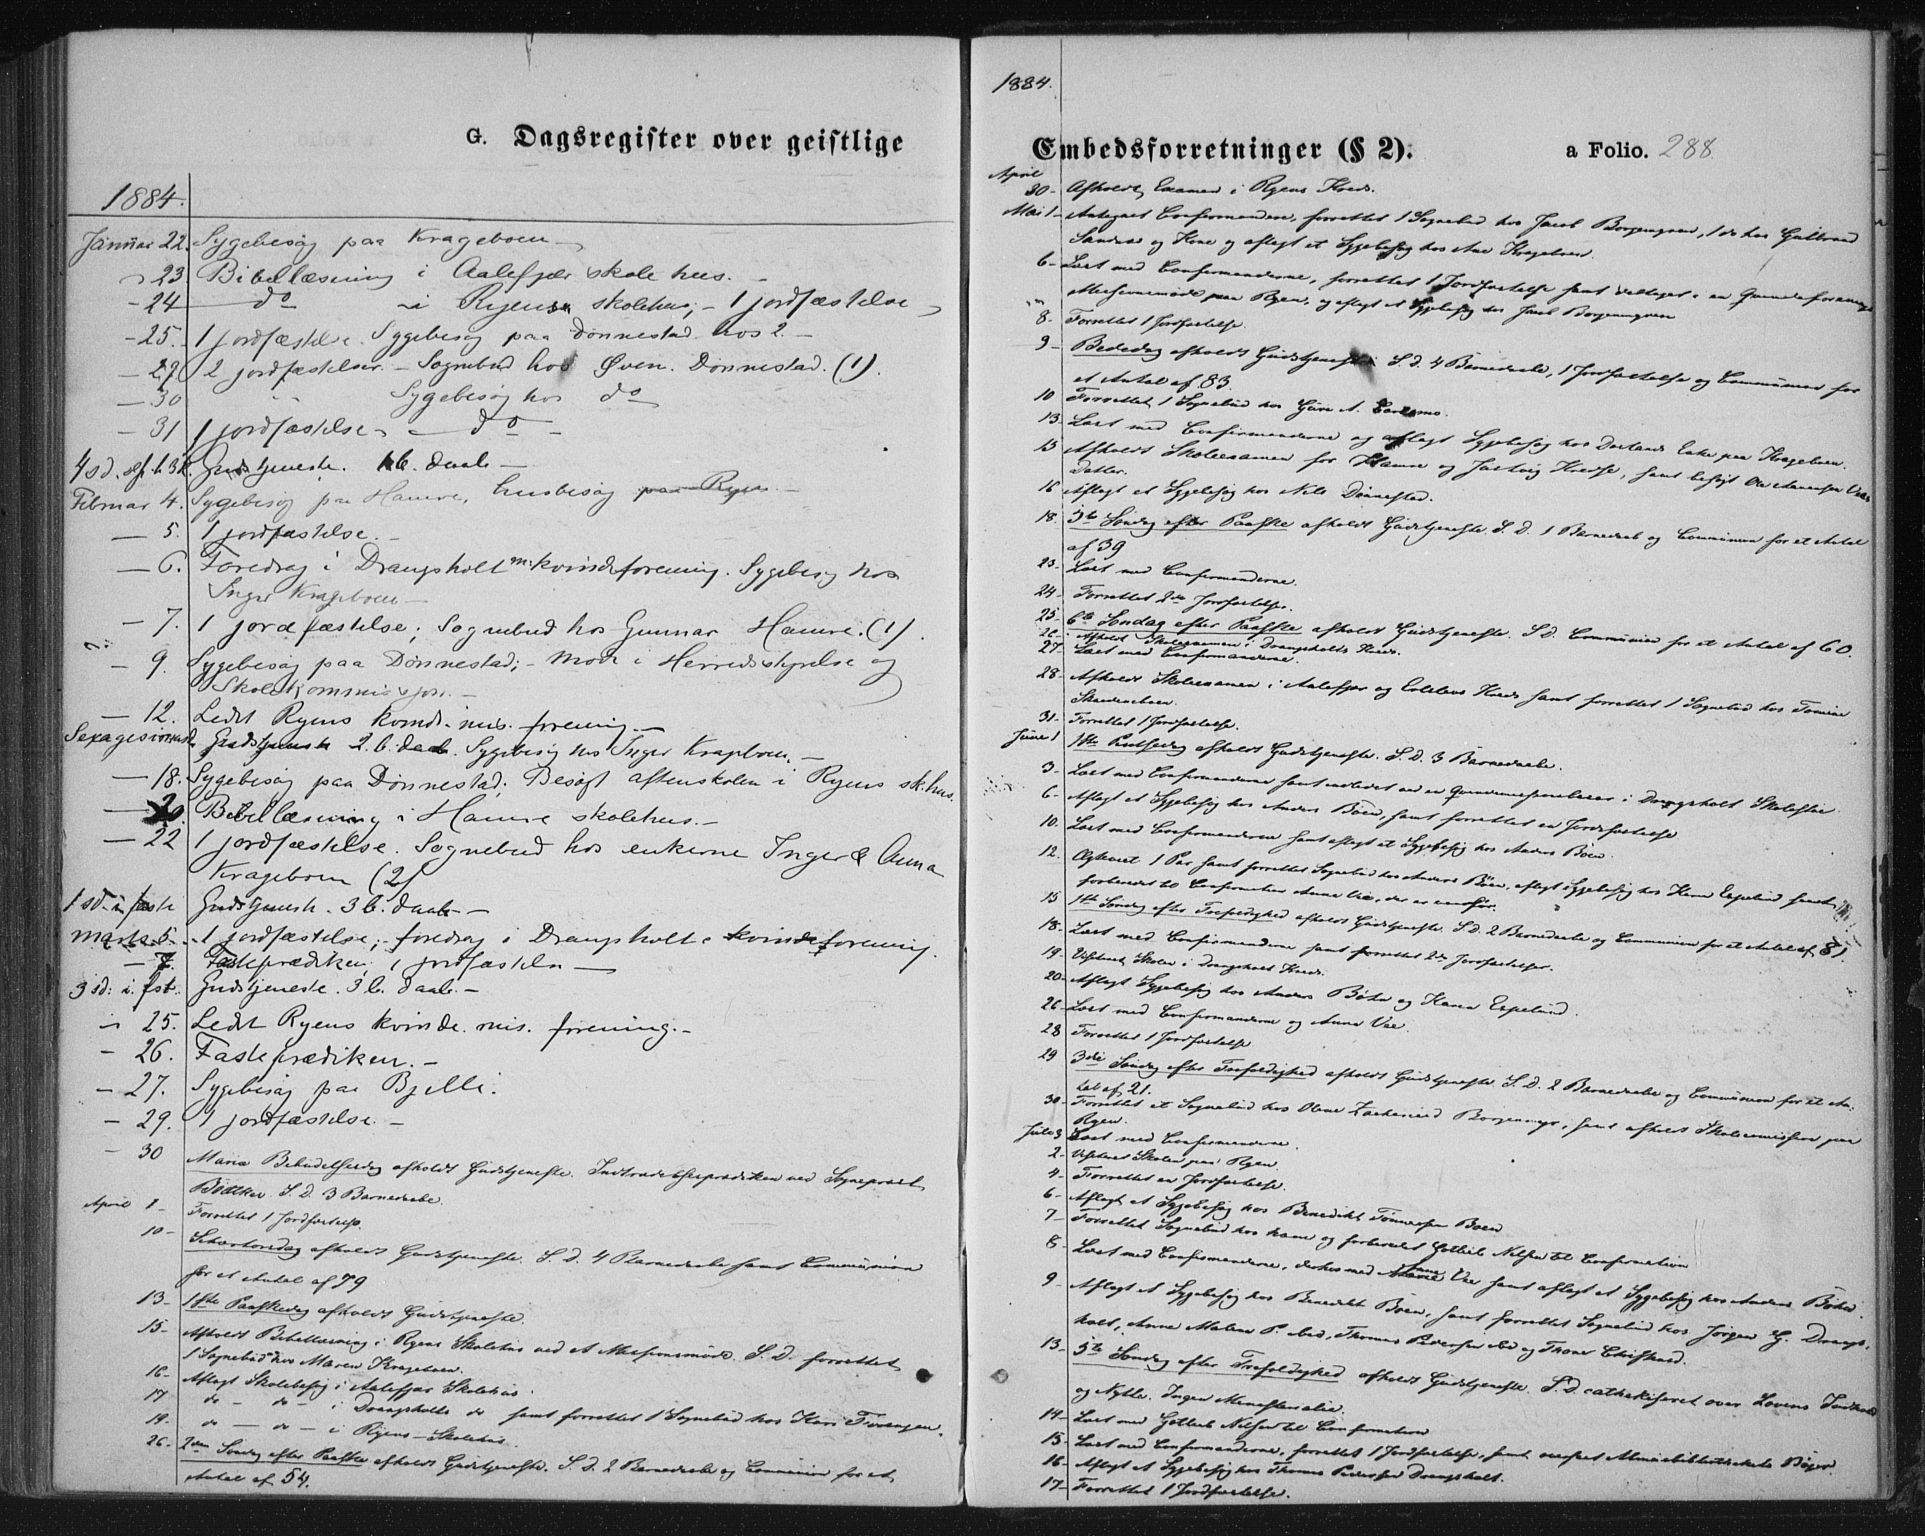 G. Dagsregister over geistlige
1884.
Januar 22. Sygebesøg paa Krageboen
23 Bibellæsning i Aalefjær skolehus.
24 do i Ryens skolehus; 1 jordfæstelse
25. 1 jordfæstelse. Sygebesøg paa Dønnestad hos 2
29 2 jordfæstelser. Sognebud hos Øven. Dønnestad. (1).
30 Sygebesøg hos do
31 1 jordfæstelse do
4 sd. Gudstjeneste. b. daab
Februar 4. Sygebesøg paa Hamre, husbesøg paa Ryen
5. 1 jordfæstelse.
6. Foredrag i Drangsholt m. kvindeforening. Sygebesøg hos
Inger Krageboen
7. 1 jordfæstelse; Sognebud hos Gunnar Hamre. (1).
9. Sygebesøg paa Dønnestad; Møde i Herredsstyrelse og
Skolekommission.
12. Ledet Ryens kvinde. mis. forening.
Sexagesima Gudstjeneste 2. b. daab. Sygebesøg hos Inger Krageboen.
18. Sygebesøg paa Dønnestad; Besøgt aftenskolen i Ryens sk.hus.
20. Bibellæsning i Hamre skolehus.
22 1 jordfæstelse. Sognebud hos enkerne Inger & Anna
Krageboen (2)
1 sd. i faste Gudstjeneste. 3 b. daab
Marts 5. 1 jordfæstelse; foredrag i Drangsholts kvindeforening.
7. Fasteprædiken; 1 jordfæstelse
3 sd. i fst. Gudstjeneste. 3 b. daab.
25. Ledet Ryens kvinde. mis. forening.
26. Fasteprædiken.
27. Sygebesøg paa Bjelli.
29. 1 jordfæstelse.
30 Mariæ Bebudelsesdag afholdt Gudstjeneste. Indtrædelsesprædiken ved Sognepræst
Bøttker. S. D. 3 Barnedaabe.
April 1 Forrettet 1 Jordfæstelse.
10 Skjærtorsdag afholdt Gudstjeneste. S. D. 4 Barnedaabe samt Communion
for et Antal af 79
13 1ste Paaskedag afholdt Gudstjeneste.
15 Afholdt Bibellæsning i Ryens Skolehus ved et Missionsmøde. S. D. forrettet
1 Sognebud hos Maren Krageboen.
16 Aflagt Skolebesøg i Aalefjær Skolehus.
17 do do i Drangsholts do samt forrettet 1 Sognebud hos Kari
19. do do i Ryens Skolehus.
26 2den Søndag efter Paaske afholdt Gudstjeneste. S. D. 2 Barnedaabe og Communion for et
Antal af 54.
1884.
Embedsforretninger (§ 2).
a Folio. 288
April 30 Afholdt Examen i Ryens Kreds.
Mai 1 Antegnet Confirmandene, forrettet 1 Sognebud hos Jacob Borgengrav, 1 do hos Gulbrand
og Kone og aflagt et Sygebesøg hos Ane Krageboen.
6 Læst med Confirmanderne, forrettet 1 Jordfæstelse samt deltaget i en Qvindeforenings
Missionsmøde paa Ryen, og aflagt et Sygebesøg hos Jacob Borgengraven
8. Forrettet 1 Jordfæstelse.
9 Bededag afholdt Gudstjeneste S. d. 4 Barnedaabe, 1 Jordfæstelse og Communion for
et Antal af 83.
10 Forrettet 1 Sognebud hos
13. Læst med Confirmanderne og aflagt Sygebesøg hos Enke paa Krageboen.
15 Afholdt Skoleexamen for Hamre og Kredse, samt besøgt Ole
Datter.
16 Aflagt et Sygebesøg hos Nils Dønnestad.
18. 5te Søndag efter Paaske afholdt Gudstjeneste. S. D. 1 Barnedaab og Communion for et Antal
af 39
23. Læst med Confirmanderne.
24. Forrettet 2de Jordfæstelser.
25. 6te Søndag efter Paaske afholdt Gudstjeneste. S. D. Communion for et Antal af 60.
26. Afholdt Skoleexamen i Drangsholts Kreds.
27. Læst med Confirmanderne.
28. Afholdt Skoleexamen i Aalefjær og Kreds samt forrettet 1 Sognebud hos
31. Forrettet 1 Jordfæstelse.
Juni 1 1ste Pintsedag afholdt Gudstjeneste. S. D. 3 Barnedaabe.
3. Læst med Confirmanderne samt i Drangsholt Skolehus
6. Aflagt et Sygebesøg hos Anders Boen, samt forrettet en Jordfæstelse
10. Læst med Confirmanderne samt aflagt et Sygebesøg hos Anders Boen.
12. Ægteviet 1 Par samt forrettet Sognebud hos Anders Bøen, aflagt Sygebesøg hos Espelund samt
forberedet til Confirmation Anne Vee, der er
15 1ste Søndag efter Trefoldighed afholdt Gudstjeneste. S. D. 2 Barnedaabe og Communion for et Antal af 81.
18. Læst med Confirmanderne samt forrettet 2de Jordfæstelser.
19. Visiteret Skolen i Drangsholt Kreds.
20. Aflagt Sygebesøg hos Anders Bøhn og Espelund.
26. Læst med Confirmanderne og Anna Vee.
28 Forrettet 1 Jordfæstelse
29 3die Søndag efter Trefoldighed afholdt Gudstjeneste. S. D. 2 Barnedaabe og Communion for et An-
tal af 21.
30. Forrettet et Sognebud hos Olene Zachariasd Borgengrav, samt afholdt Skolecommission paa
Ryen.
Juli Læst med Confirmanderne.
2 Visiteret Skolen paa Ryen.
4. Forrettet en Jordfæstelse.
6 Aflagt et Sygebesøg hos Benedikt Tønnesen Boen
7 Forrettet Sognebud hos ham og forberedet Gotlieb Nilsen til Confirmation
8 Læst med Confirmanderne, derhos med Anne Vee samt aflagt et Sygebesøg hos Anders Bøhn
9 Aflagt et Sygebesøg hos Benedikt Bøen, samt forrettet Sognebud hos Jørgen G. Drangs-
holt, Anne Malene P. ibid, Thomas Pedersen ibid og Thone
13. 5te Søndag efter Trefoldighed afholdt Gudstjeneste. S. D. cathekiseret over Lovens Indhold
og Nytte. Ingen Ministerialia.
14 Læst med Gotlieb Nilsen til Confirmation
15. Læst med Confirmanderne, forrettet 1 Jordfæstelse, samt Bøger
16 Aflagt et Sygebesøg hos Thomas Pedersen Drangsholt.
17 Forrettet 1 Jordfæstelse.